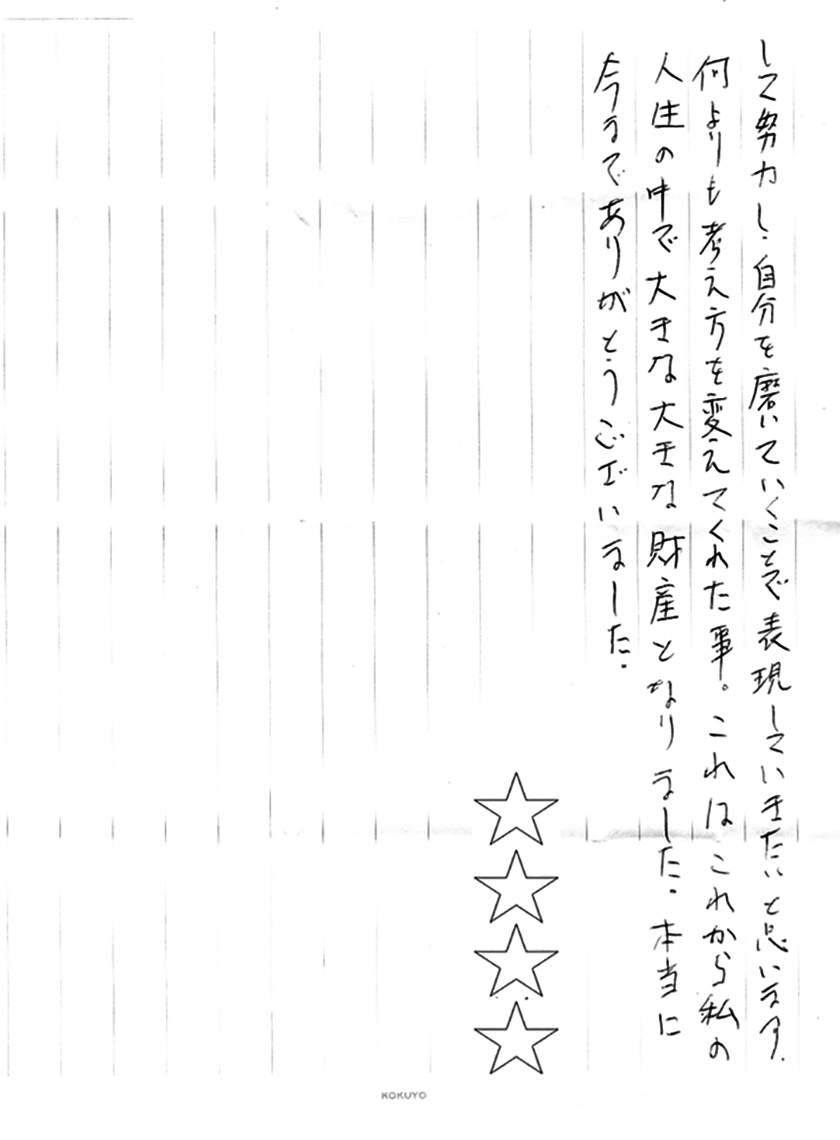 して努力し、自分を磨いていくことで表現していきたいと思います。
何よりも考え方を変えてくれた事。これはこれから私の
人生の中で大きな大きな財産となりました。本当に
今まであり��がとうございました。
☆☆☆☆
KOKUYO